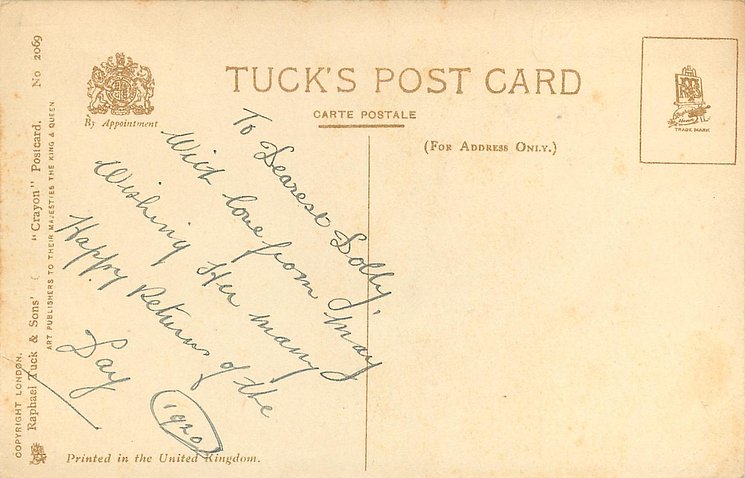 TUCK'S POST CARD
CARTE POSTALE
(FOR ADDRESS ONLY.)
By Appointment
TRADE MARK
To Dearest Dolly,
With love from May
Wishing Her many
Happy Returns of the
Day
1920
COPYRIGHT LONDON.
Raphael Tuck & Sons' "Crayon" Postcard. No 2069
ART PUBLISHERS TO THEIR MAJESTIES THE KING & QUEEN.
Printed in the United Kingdom.